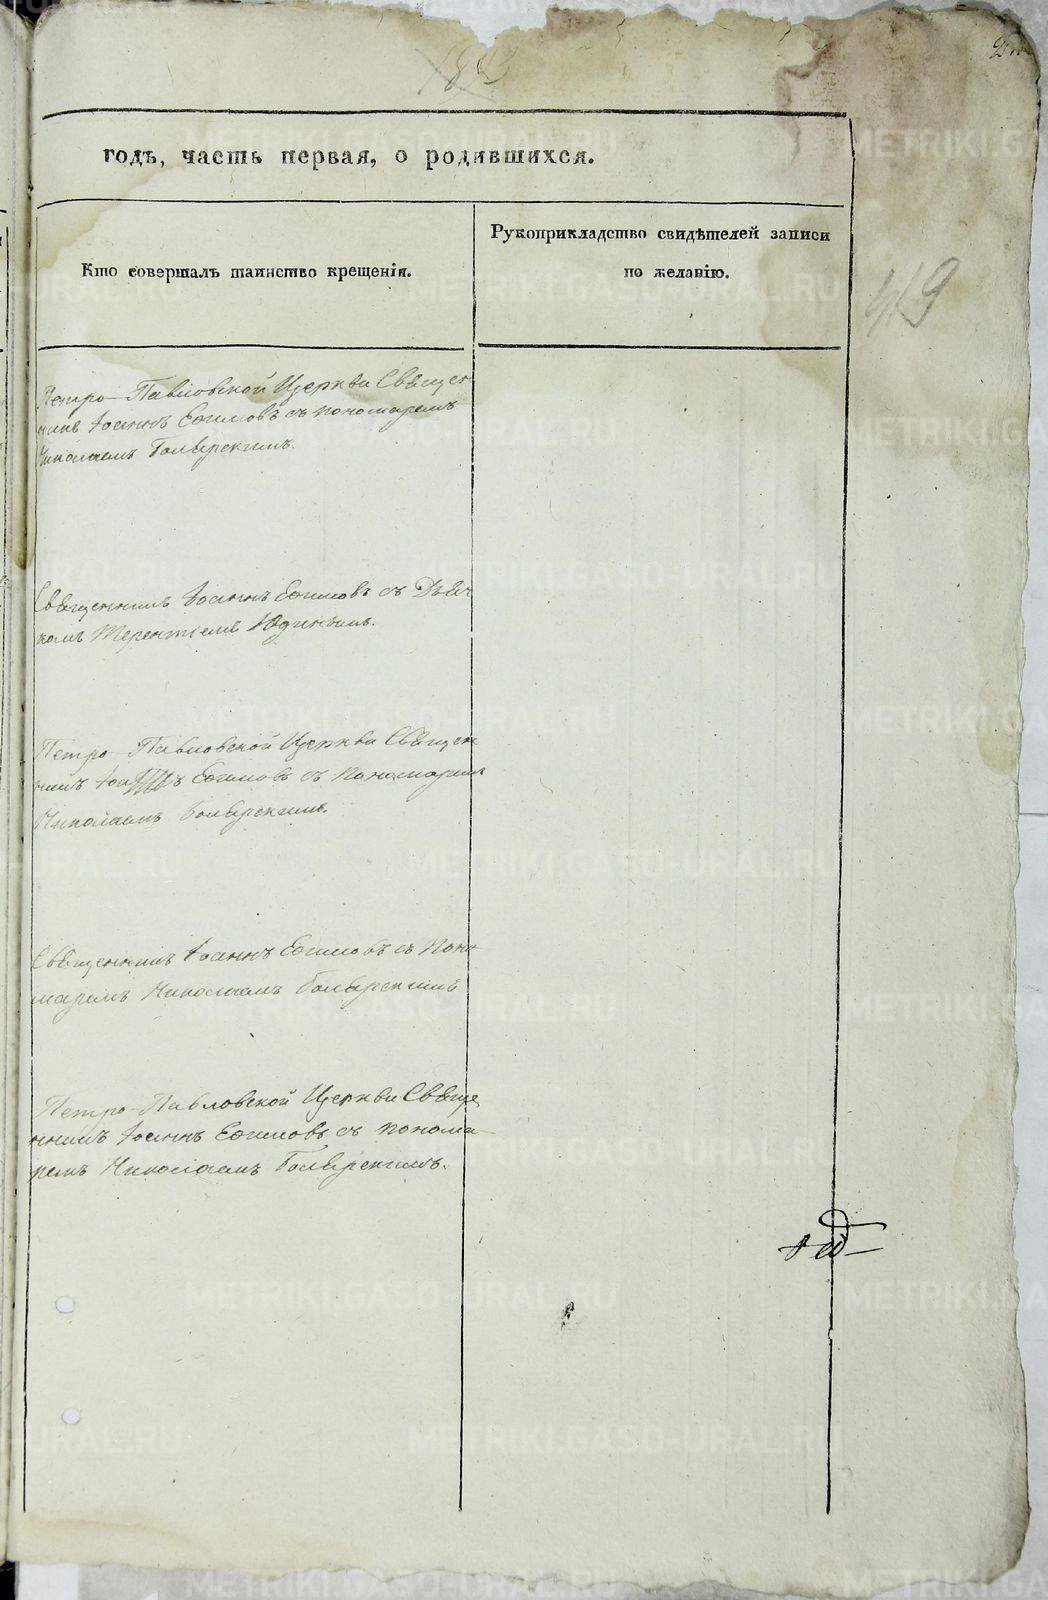 годъ, часть первая, о родившихся.
Кто совершалъ таинство крещенія.
Рукоприкладство свидѣтелей записи
по желанію.
419
Петро-Павловской Церкви Священ
никъ Іоаннъ Ефимовъ съ пономаремъ
Николаемъ
Священникъ Іоаннъ Ефимовъ съ Дьяч
комъ Терентіемъ Юдинымъ.
Петро-Павловской Церкви Священ
никъ Ефимовъ съ Пономаремъ
Николаемъ
Священникъ Іоаннъ Ефимовъ съ Поно
маремъ Николаемъ
Петро-Павловской Церкви Свяще
нникъ Іоаннъ Ефимовъ съ понома
ремъ Николаемъ
METRIKI.GASO-URAL.RU